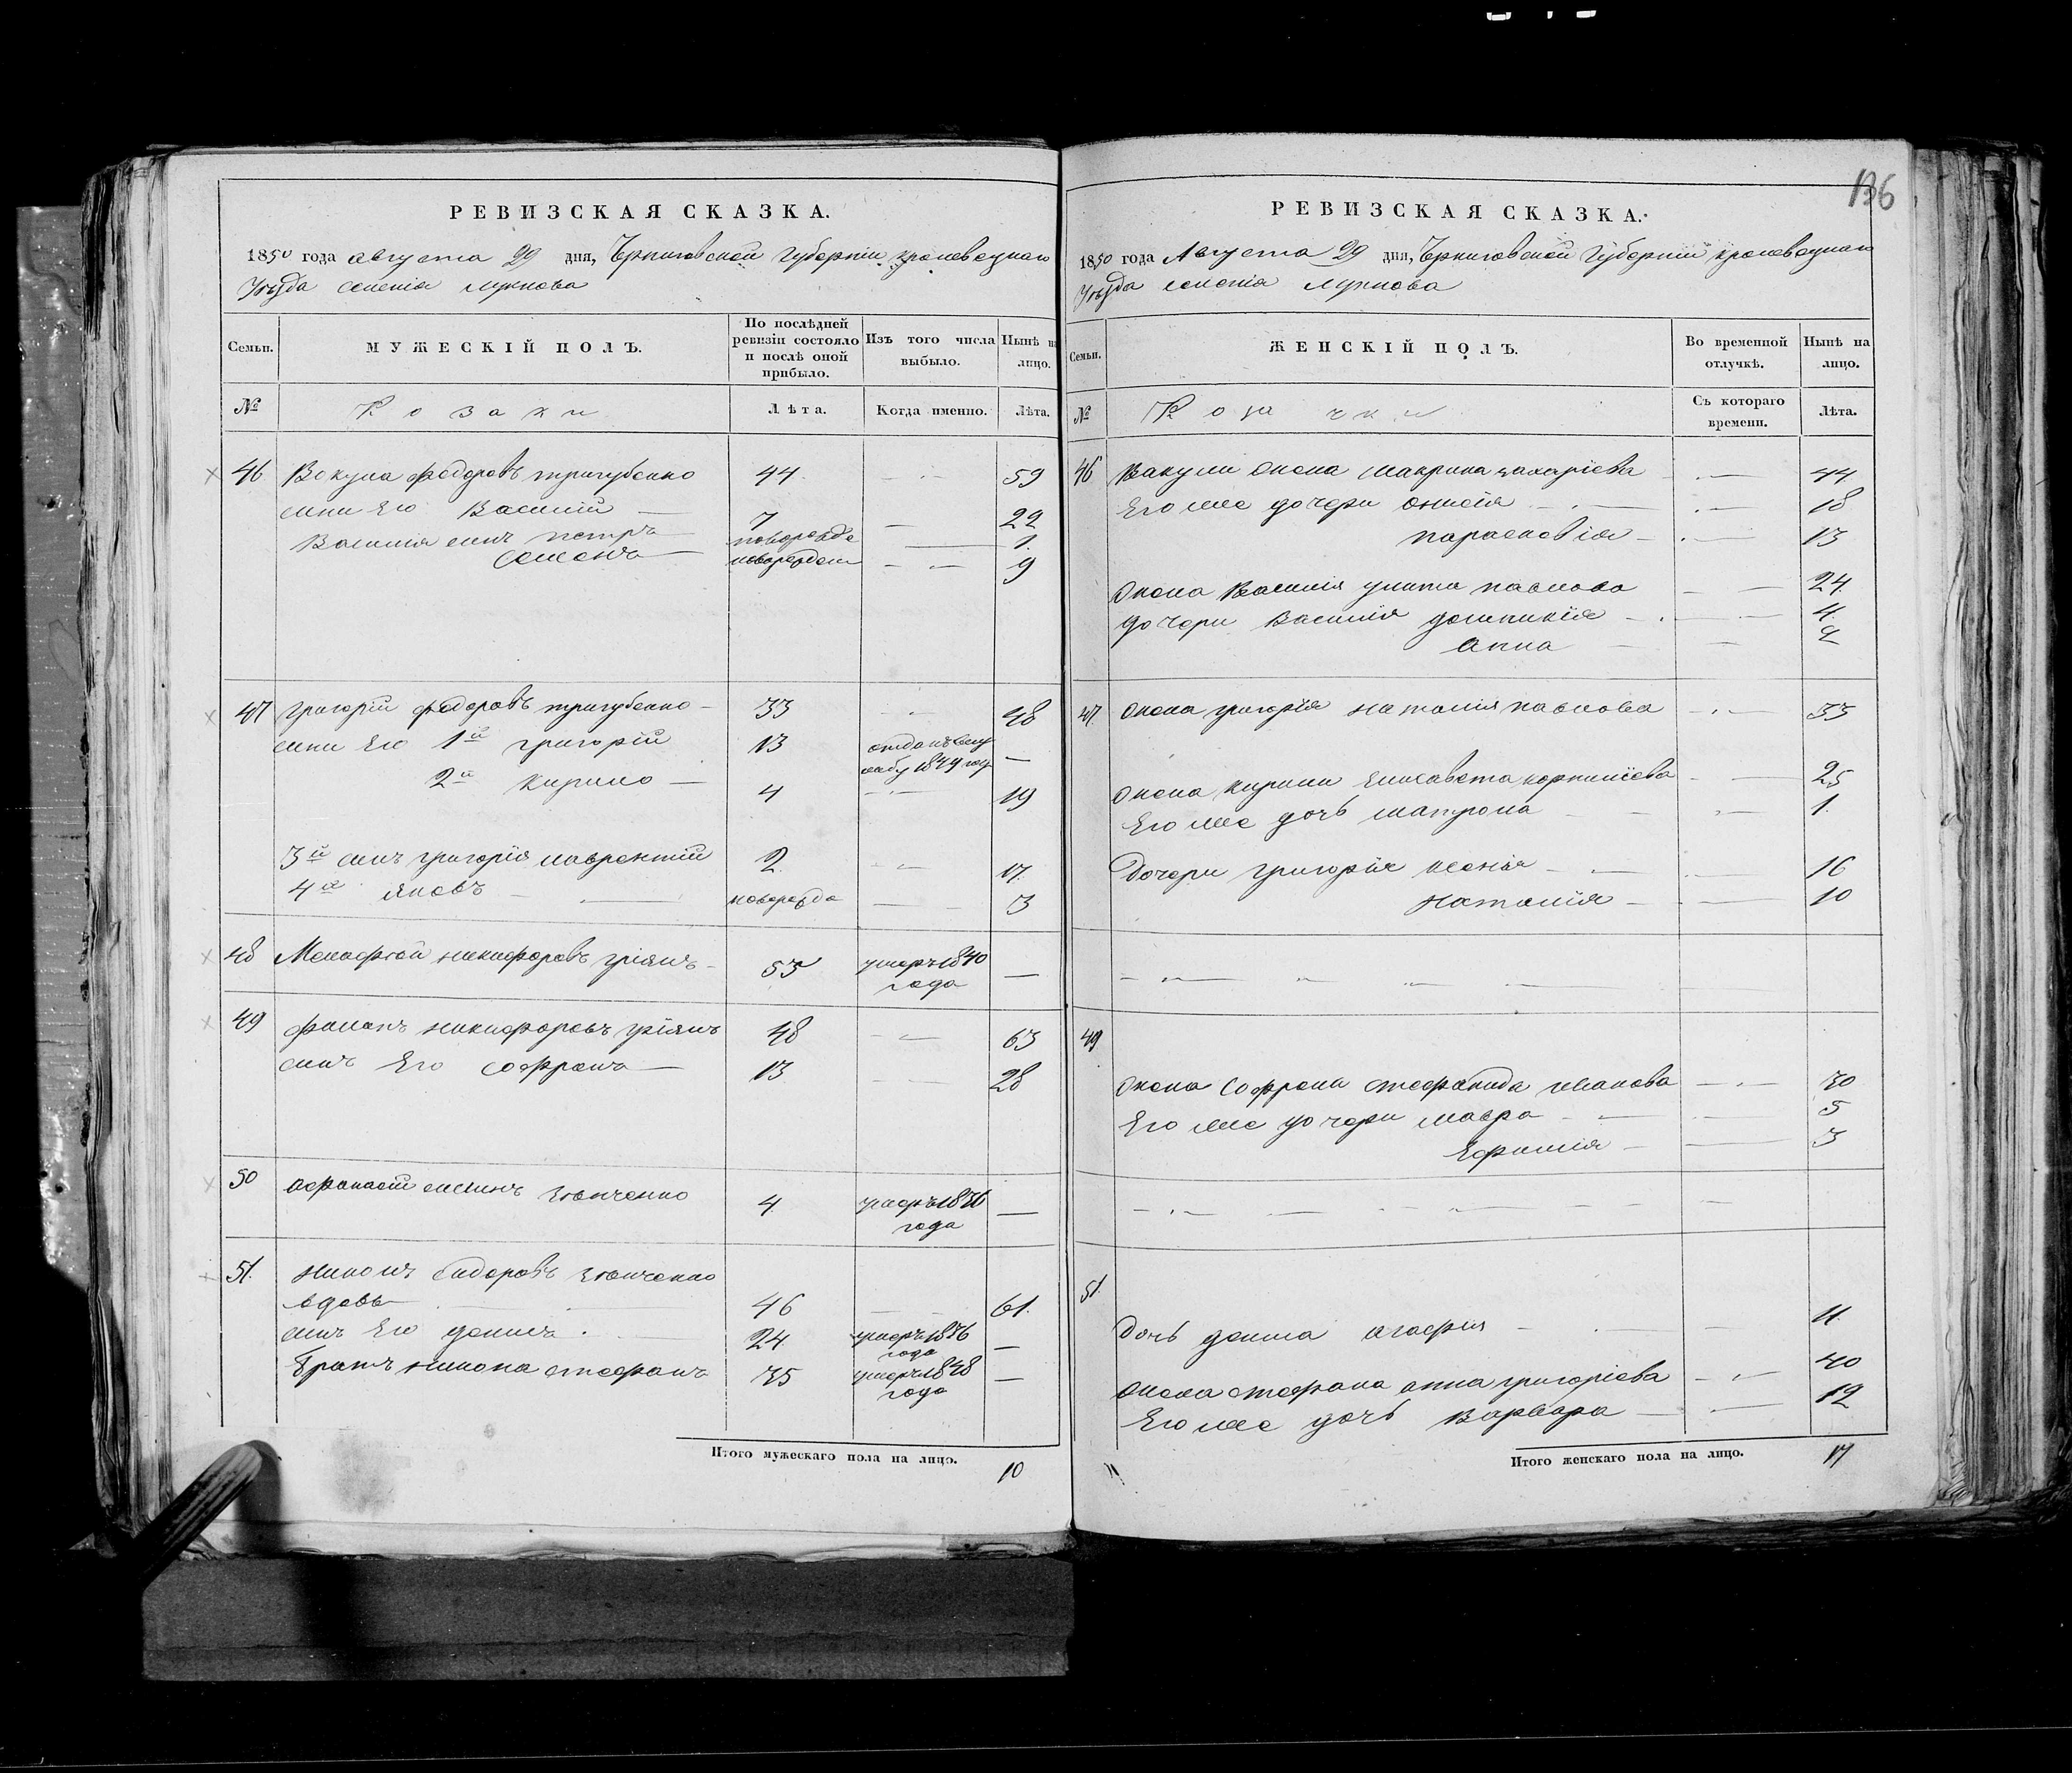 РЕВИЗСКАЯ СКАЗКА.
1850 года августа 29 дня, Черниговской губернии кролевецкаго
Уѣзда селенія Лукнова
Семьи. МУЖЕСКІЙ ПОЛЪ. По послѣдней ревизіи состояло и послѣ оной прибыло. Изъ того числа выбыло. Нынѣ на лицо.
№ Козаки Лѣта. Когда именно. Лѣта.
46 Вакула федоровъ тригубенко 44 59
сынъ Его Василій 7 22
Василія сынъ петръ новорожде 1
Семенъ новорожден 9
47 григорій федоровъ тригубенко 33 48
сыны Его 1й григорій 13 отданъ въ службу 1849 году —
2й кирило 4 19
3й сынъ григорія лаврентій 2 17
4й яковъ новорожде 3
48 никифоровъ гріянъ 53 умеръ 1840 года —
49 филипъ никифоровъ гріянъ 48 63
сынъ Его софронъ 13 28
50 афанасій 4 умеръ 1836 года —
51 никонъ сидоровъ
вдовъ 46 61
сынъ Его денисъ 24 умеръ 1836 года —
братъ никона стефанъ 35 умеръ 1848 года —
Итого мужескаго пола на лицо. 10
136
РЕВИЗСКАЯ СКАЗКА.
1850 года Августа 29 дня, Черниговской губерніи кролевецкаго
Уѣзда селенія Лукнова
Семьи. ЖЕНСКІЙ ПОЛЪ. Во временной отлучкѣ. Нынѣ на лицо.
№ Козачки Съ котораго времени. Лѣта.
46 Вакулы жена макрина захаріева 44
Его же дочери 18
парасковія 13
жена Василія улита павлова 24
дочери Василія домникія 4
анна 2
47 жена григорія наталія павлова 33
жена кирилы Елисавета корниліева 25
Его же дочь матрона 1
Дочери григорія ксенія 16
наталія 10
49
жена софрона стефанида иванова 30
Его же дочери мавра 5
Ефимія 3
51
Дочь дениса агафия 11
жена стефана анна григоріева 40
Его же дочь варвара 12
Итого женскаго пола на лицо. 17